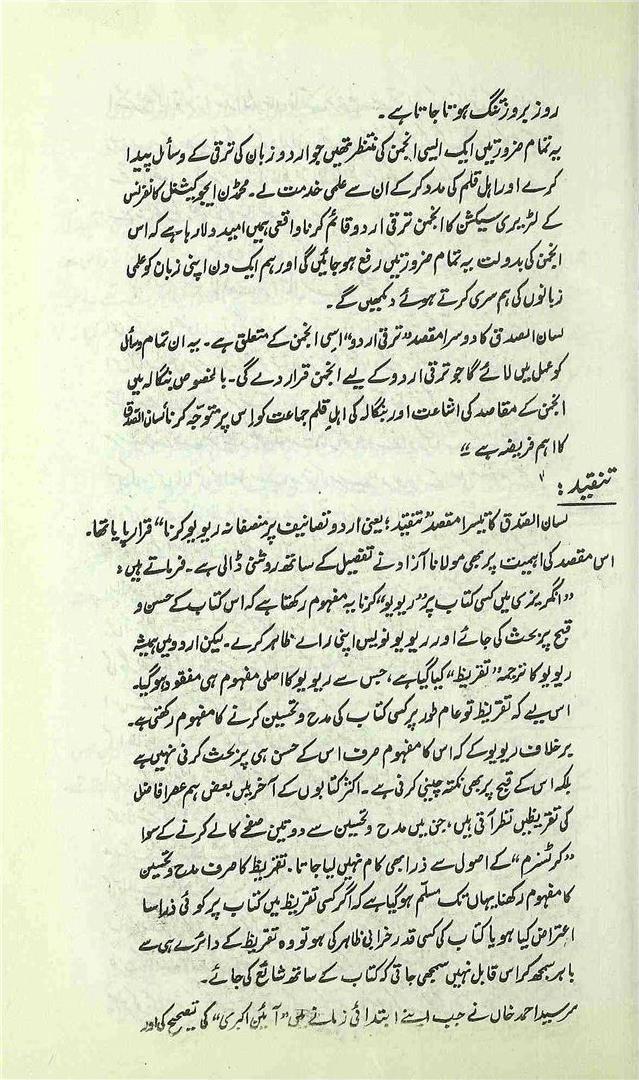 روز بروز تنگ ہوتا جاتا ہے۔
یہ تمام ضرورتیں ایک ایسی انجمن کی منتظر تھیں جو اردو زبان کی ترقی کے وسائل پیدا
کرے اور اہل قلم کی مدد کر کے ان سے علمی خدمت لے۔ محمڈن ایجوکیشنل کانفرنس
کے لٹریری سیکشن کا انجمن ترقی اردو قائم کرنا واقعی ہمیں امید دلا رہا ہے کہ اس
انجمن کی بدولت یہ تمام ضرورتیں رفع ہو جائیں گی اور ہم ایک دن اپنی زبان کو علمی
زبانوں کی ہم سری کرتے ہوئے دیکھیں گے۔
لسان الصدق کا دوسرا مقصد "ترقی اردو" اسی انجمن کے متعلق ہے۔ یہ ان تمام وسائل
کو عمل میں لائے گا جو ترقی اردو کے لیے انجمن قرار دے گی۔ بالخصوص بنگالہ میں
انجمن کے مقاصد کی اشاعت اور بنگالہ کی اہل قلم جماعت کو اس پر متوجہ کرنا لسان الصدق
کا اہم فریضہ ہے"
تنقید:
لسان الصدق کا تیسرا مقصد "تنقید؛ یعنی اردو تصانیف پر منصفانہ ریویو کرنا" قرار پایا تھا۔
اس مقصد کی اہمیت پر بھی مولانا آزاد نے تفصیل کے ساتھ روشنی ڈالی ہے۔ فرماتے ہیں:
"انگریزی میں کسی کتاب پر "ریویو" کرنا یہ مفہوم رکھتا ہے کہ اس کتاب کے حسن و
قبح پر بحث کی جائے اور ریویو نویس اپنی رائے ظاہر کرے۔ لیکن اردو میں ہمیشہ
ریویو کا ترجمہ "تقریظ" کیا گیا ہے، جس سے ریویو کا اصلی مفہوم ہی مفقود ہو گیا۔
اس لیے کہ تقریظ تو عام طور پر کسی کتاب کی مدح و تحسین کرنے کا مفہوم رکھتی ہے۔
برخلاف ریویو کے کہ اس کا مفہوم صرف اس کے حسن ہی پر بحث کرنی نہیں ہے
بلکہ اس کے قبح پر بھی نکتہ چینی کرنی ہے۔ اکثر کتابوں کے آخر میں بعض ہم عصر افاضل
کی تقریظیں نظر آتی ہیں، جن میں مدح و تحسین سے دو تین صفحے کالے کرنے کے سوا
"کرٹسزم" کے اصول سے ذرا بھی کام نہیں لیا جاتا۔ تقریظ کا صرف مدح و تحسین
کا مفہوم رکھنا یہاں تک مسلّم ہو گیا ہے کہ اگر کسی تقریظ میں کتاب پر کوئی ذرا سا
اعتراض کیا ہو یا کتاب کی کسی قدر خرابی ظاہر کی ہو تو وہ تقریظ کے دائرے ہی سے
باہر سمجھ کر اس قابل نہیں سمجھی جاتی کہ کتاب کے ساتھ شائع کی جائے۔
سرسید احمد خاں نے جب اپنے ابتدائی زمانے میں "آئین اکبری" کی تصحیح کی اور